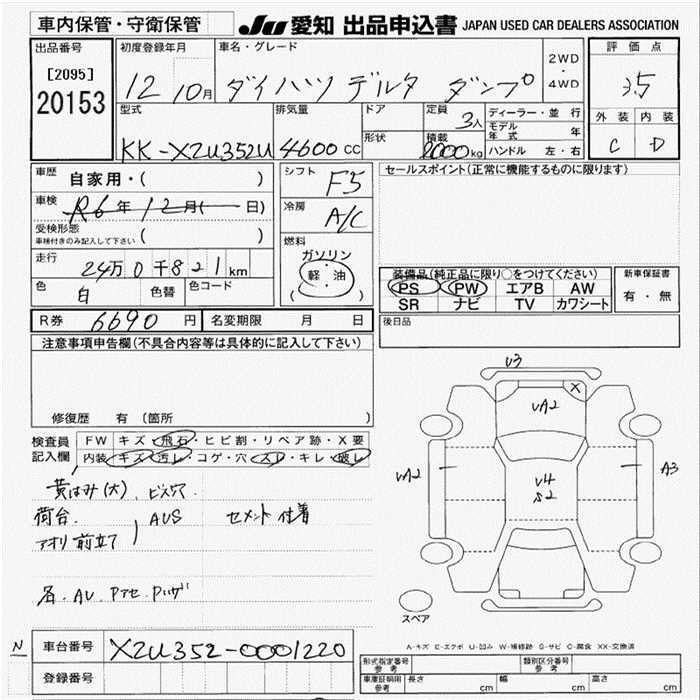 車内保管・守衛保管 JU 愛知 出品申込書 JAPAN USED CAR DEALERS ASSOCIATION
出品番号 初度登録年月 車名・グレード 2WD・4WD 評価点
[2095] 12 10月 ダイハツ デルタ ダンプ 3.5
20153
型式 排気量 ドア 定員 3人 ディーラー・並行 外装 内装
モデル年式 年
KK-XZU352U 4600cc 形状 積載 2000kg ハンドル 左・右 C D
車歴 自家用・( ) シフト F5 セールスポイント(正常に機能するものに限ります)
車検 R6年12月( 日) 冷房 A/C
受検形態
車検付きのみ記入して下さい ( )
燃料
走行 24万0千821km ガソリン
軽・油
( )
装備品(純正品に限り○をつけてください) 新車保証書
色 白 色替 色コード PS PW エアB AW 有・無
SR ナビ TV カワシート
R券 6690円 名変期限 月 日 後日品
注意事項申告欄(不具合内容等は具体的に記入して下さい)
修復歴 有 (箇所 )
検査員 FW キズ・飛石・ヒビ割・リペア跡・X要
記入欄 内装 キズ・汚レ・コゲ・穴・スレ・キレ・破レ
黄ばみ(大) ビス穴.
荷台. AUS セメント付着
アオリ 前立て
U3
X
UA2
UA2
A3
U4
S2
スペア
A-キズ E-エクボ U-凹み W-補修跡 S-サビ C-腐食 XX-交換済
N 車台番号 XZU352-0001220
登録番号
形式指定番号 参考 類別区分番号 参考
車庫証明用 参考 長さ cm 幅 cm 高さ cm